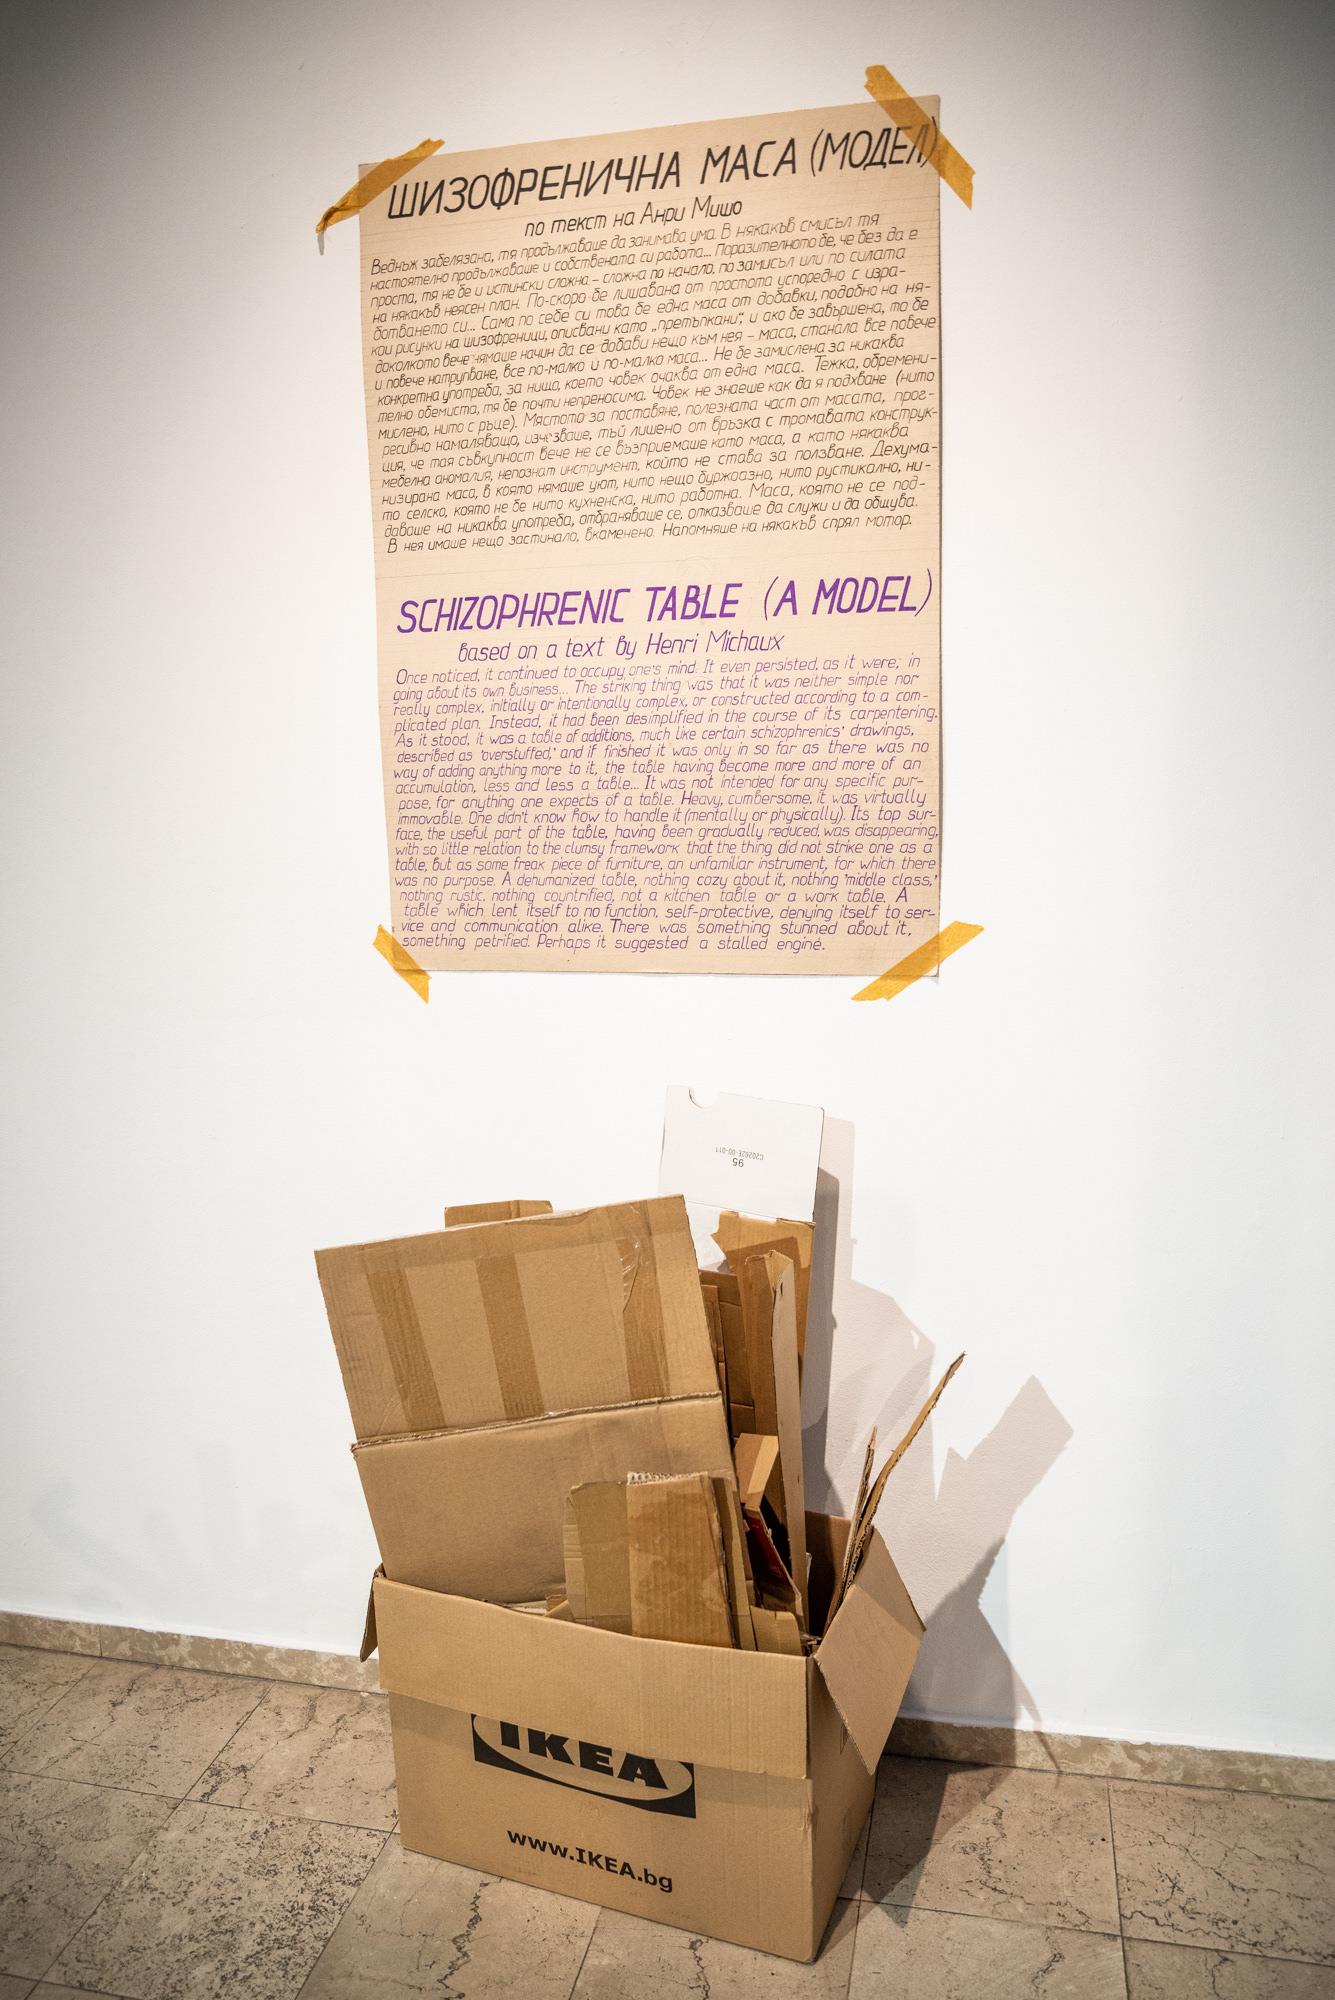 ШИЗОФРЕНИЧНА МАСА (МОДЕЛ)
по текст на Анри Мишо
Веднъж забелязана, тя продължаваше да занимава ума. В някакъв смисъл тя
настоятелно продължаваше и собствената си работа... Поразителното бе, че без да е
проста, тя не бе и истински сложна – сложна по начало, по замисъл или по силата
на някакъв неясен план. По-скоро бе лишавана от простота успоредно с изра-
ботването си... Сама по себе си това бе една маса от добавки, подобно на ня-
кои рисунки на шизофреници, описвани като „претъпкани“, и ако бе завършена, то бе
доколкото вече нямаше начин да се добави нещо към нея – маса, станала все повече
и повече натрупване, все по-малко и по-малко маса... Не бе замислена за никаква
конкретна употреба, за нищо, което човек очаква от една маса. Тежка, обремени-
телно обемиста, тя бе почти непреносима. Човек не знаеше как да я подхване (нито
мислено, нито с ръце). Мястото за поставяне, полезната част от масата, прог-
ресивно намаляващо, изчезваше, тъй лишено от връзка с тромавата конструк-
ция, че тая съвкупност вече не се възприемаше като маса, а като някаква
мебелна аномалия, непознат инструмент, който не става за ползване. Дехума-
низирана маса, в която нямаше уют, нито нещо буржоазно, нито рустикално, ни-
то селско, която не бе нито кухненска, нито работна. Маса, която не се под-
даваше на никаква употреба, отбраняваше се, отказваше да служи и да общува.
В нея имаше нещо застинало, вкаменено. Напомняше на някакъв спрял мотор.
SCHIZOPHRENIC TABLE (A MODEL)
based on a text by Henri Michaux
Once noticed, it continued to occupy one's mind. It even persisted, as it were, in
going about its own business... The striking thing was that it was neither simple nor
really complex, initially or intentionally complex, or constructed according to a com-
plicated plan. Instead, it had been desimplified in the course of its carpentering.
As it stood, it was a table of additions, much like certain schizophrenics' drawings,
described as 'overstuffed,' and if finished it was only in so far as there was no
way of adding anything more to it, the table having become more and more of an
accumulation, less and less a table... It was not intended for any specific pur-
pose, for anything one expects of a table. Heavy, cumbersome, it was virtually
immovable. One didn't know how to handle it (mentally or physically). Its top sur-
face, the useful part of the table, having been gradually reduced, was disappearing,
with so little relation to the clumsy framework that the thing did not strike one as a
table, but as some freak piece of furniture, an unfamiliar instrument, for which there
was no purpose. A dehumanized table, nothing cozy about it, nothing 'middle class,'
nothing rustic, nothing countrified, not a kitchen table or a work table. A
table which lent itself to no function, self-protective, denying itself to ser-
vice and communication alike. There was something stunned about it,
something petrified. Perhaps it suggested a stalled engine.
95
C20262E-00-011
IKEA
www.IKEA.bg